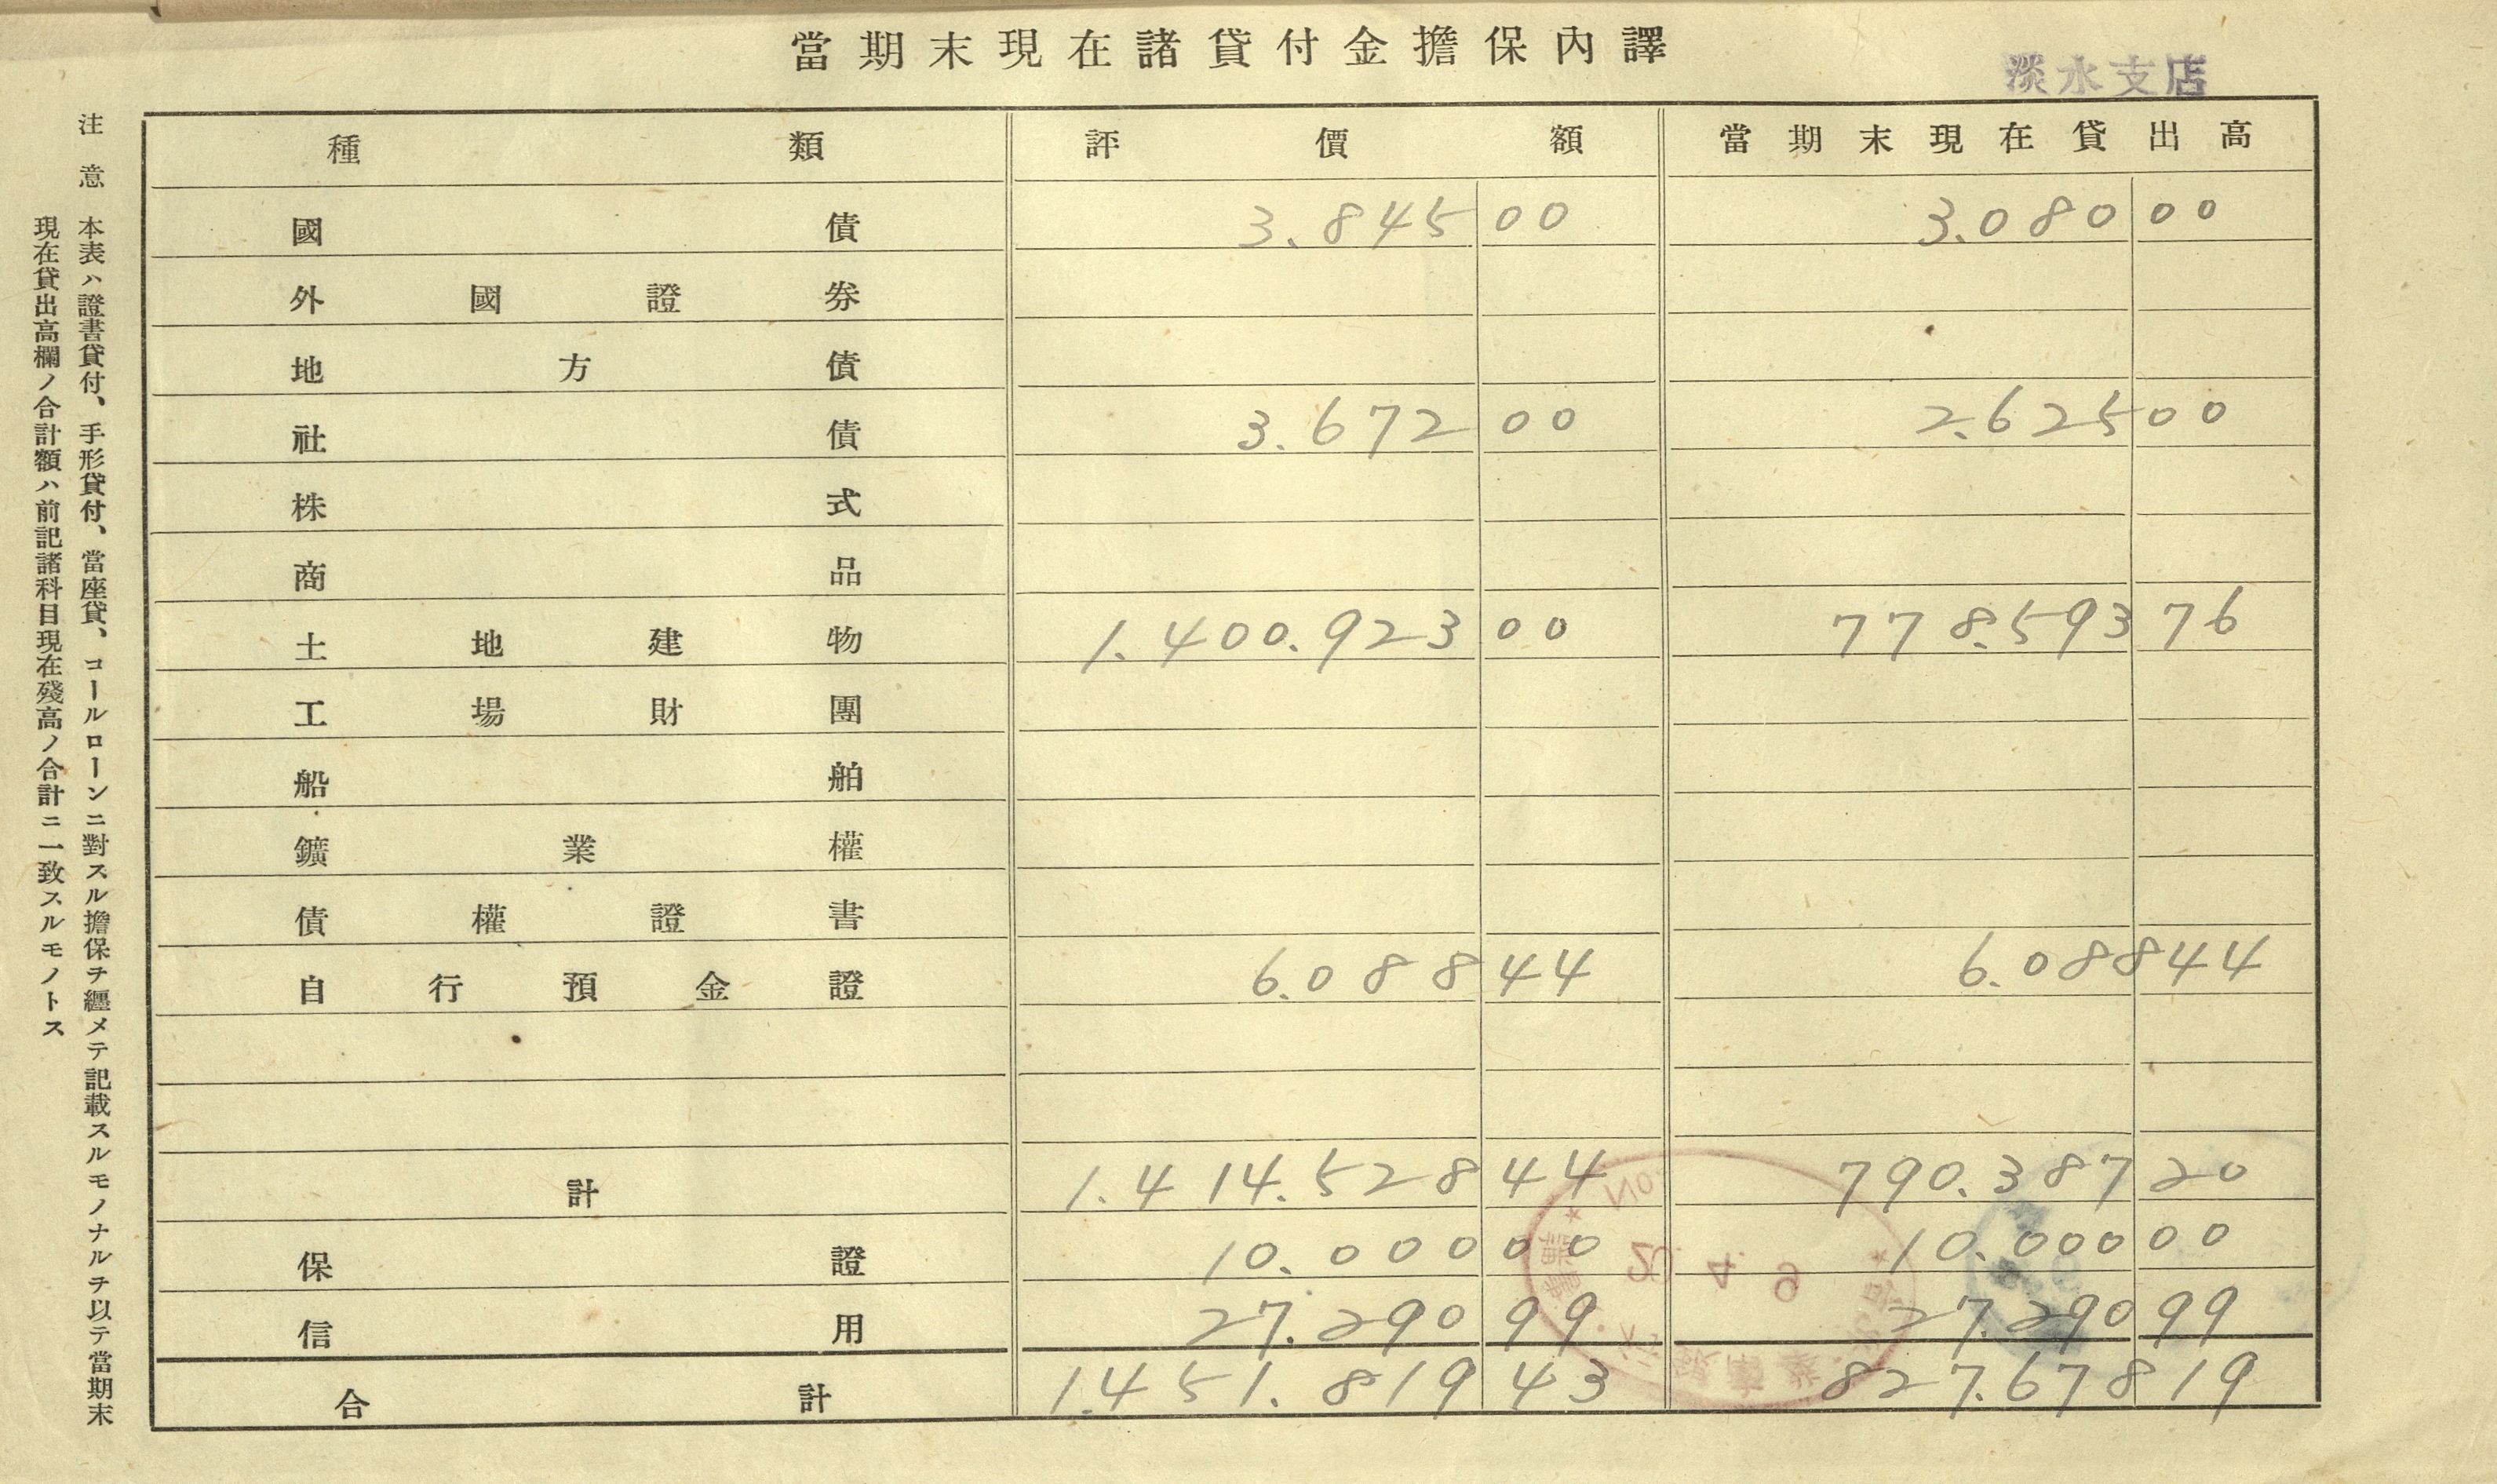 當期末現在諸貸付金擔保內譯
淡水支店
種類 評價額 當期末現在貸出高
國債 3.845 00 3.080 00
外國證券
地方債
社債 3.672 00 2.625 00
株式
商品
土地建物 1.400.923 00 778.593 76
工場財團
船舶
鑛業權
債權證書
自行預金證 6.088 44 6.088 44
計 1.414.528 44 790.387 20
保證 10.000 00 10.000 00
信用 27.290 99 27.290 99
合計 1.451.819 43 827.678 19
注意 本表ハ證書貸付、手形貸付、當座貸、コールローンニ對スル擔保ヲ纒メテ記載スルモノナルヲ以テ當期末
現在貸出高欄ノ合計額ハ前記諸科目現在殘高ノ合計ニ一致スルモノトス
No.
20. 4. 9